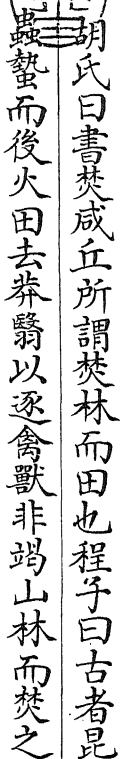 胡氏曰書焚咸丘所謂焚林而田也程子曰古者昆
蟲蟄而後火田去莽翳以逐禽獸非竭山林而焚之